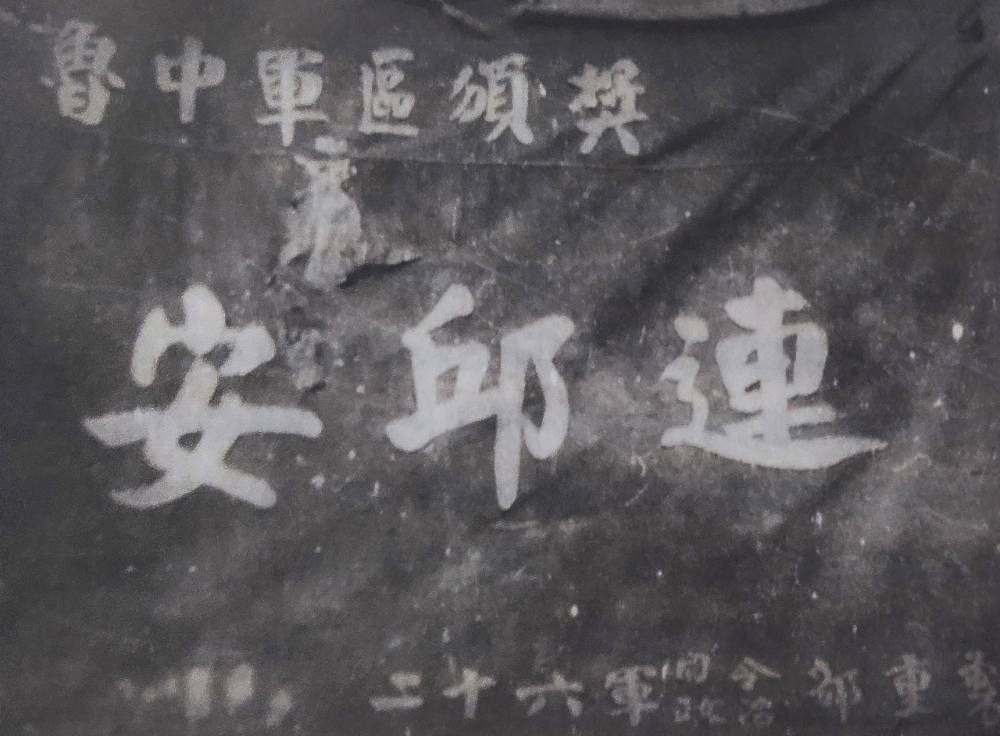 魯中軍區頒獎
安邱連
二十六軍司令政治部重製